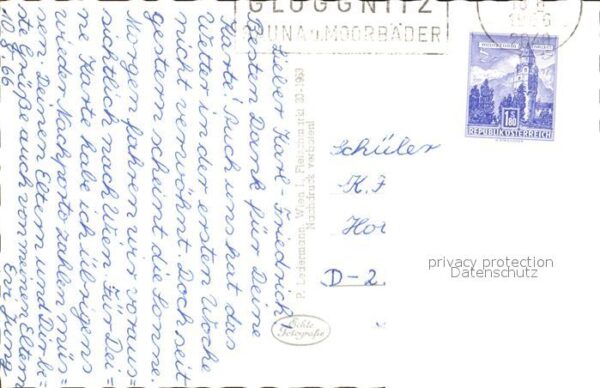 GLOGGNITZ
SAUNA u. MOORBÄDER
1966
REPUBLIK ÖSTERREICH
1.80
Lieber Karl-Friedrich!
Besten Dank für Deine
Karte! Auch uns hat das
Wetter in der ersten Woche
nicht verwöhnt. Doch seit
gestern scheint die Sonne.
Morgen fahren wir voraus=
sichtlich nach Wien. Für Dei=
ne Karte habe ich übrigens
wieder Nachporto zahlen müs=
sen. Deinen Eltern und Dir be=
ste Grüße auch von meinen Eltern
Evi Jung
10.8.66
P. Ledermann, Wien I, Fleischmarkt 20 · 1963
Nachdruck verboten!
Echte
Fotografie
Schüler
K. F
Hor
D-2.
privacy protection
Datenschutz